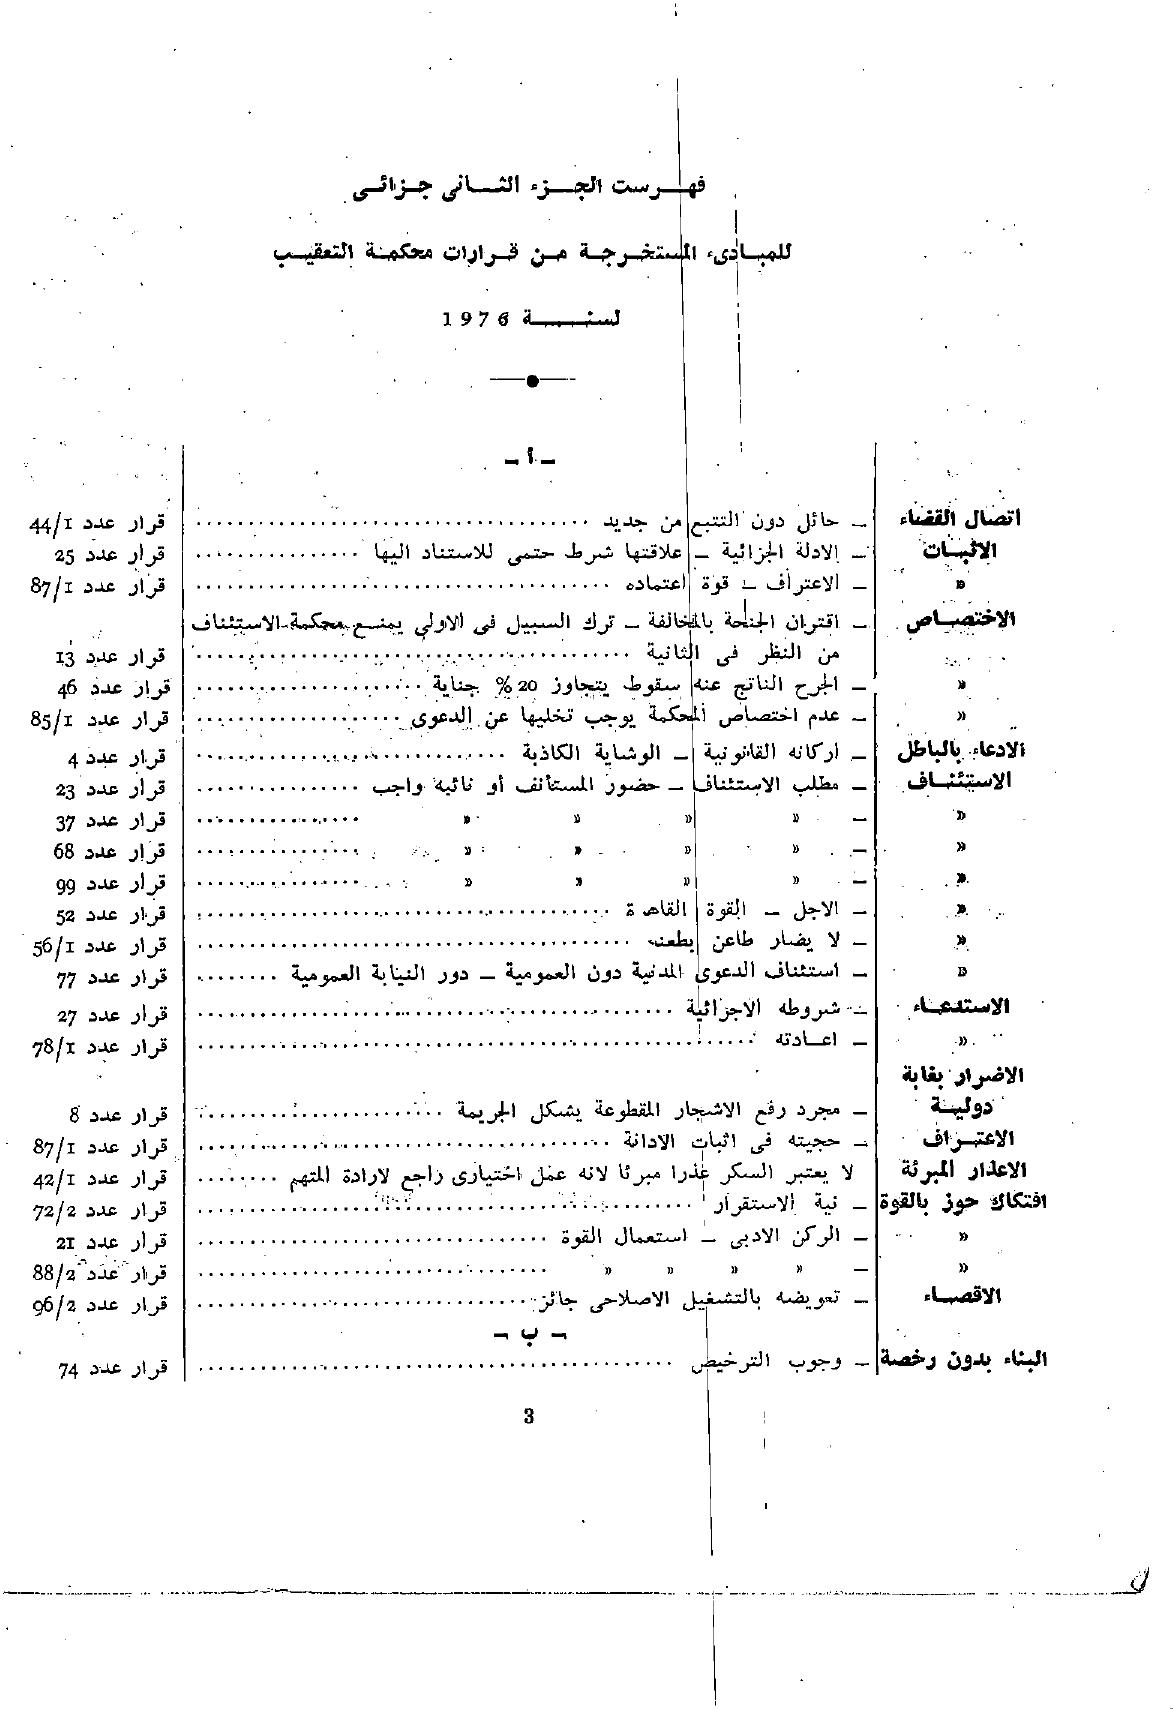 فهرست الجزء الثانى جزائى
للمبادىء المستخرجة من قرارات محكمة التعقيب
لسنة 1976
- أ -
اتصال القضاء – حائل دون التتبع من جديد .......... قرار عدد 44/1
الاثبات – الادلة الجزائية – علاقتها شرط حتمى للاستناد اليها .......... قرار عدد 25
« – الاعتراف – قوة اعتماده .......... قرار عدد 87/1
الاختصاص – اقتران الجنحة بالمخالفة – ترك السبيل فى الاولى يمنع محكمة الاستئناف
من النظر فى الثانية .......... قرار عدد 13
« – الجرح الناتج عنه سقوط يتجاوز 20% جناية .......... قرار عدد 46
« – عدم اختصاص المحكمة يوجب تخليها عن الدعوى .......... قرار عدد 85/1
الادعاء بالباطل – اركانه القانونية – الوشاية الكاذبة .......... قرار عدد 4
الاستئناف – مطلب الاستئناف – حضور المستأنف أو نائبه واجب .......... قرار عدد 23
« – « « « « .......... قرار عدد 37
« – « « « « .......... قرار عدد 68
« – « « « « .......... قرار عدد 99
« – الاجل – القوة القاهرة .......... قرار عدد 52
« – لا يضار طاعن بطعنه .......... قرار عدد 56/1
« – استئناف الدعوى المدنية دون العمومية – دور النيابة العمومية .......... قرار عدد 77
الاستدعاء – شروطه الاجرائية .......... قرار عدد 27
« – اعادته .......... قرار عدد 78/1
الاضرار بغابة
دولية – مجرد رفع الاشجار المقطوعة يشكل الجريمة .......... قرار عدد 8
الاعتراف – حجيته فى اثبات الادانة .......... قرار عدد 87/1
الاعذار المبرئة لا يعتبر السكر عذرا مبرئا لانه عمل اختيارى راجع لارادة المتهم .......... قرار عدد 42/1
افتكاك حوز بالقوة – نية الاستقرار .......... قرار عدد 72/2
« – الركن الادبى – استعمال القوة .......... قرار عدد 21
« – « « « « .......... قرار عدد 88/2
الاقصاء – تعويضه بالتشغيل الاصلاحى جائز .......... قرار عدد 96/2
- ب -
البناء بدون رخصة – وجوب الترخيص .......... قرار عدد 74
3